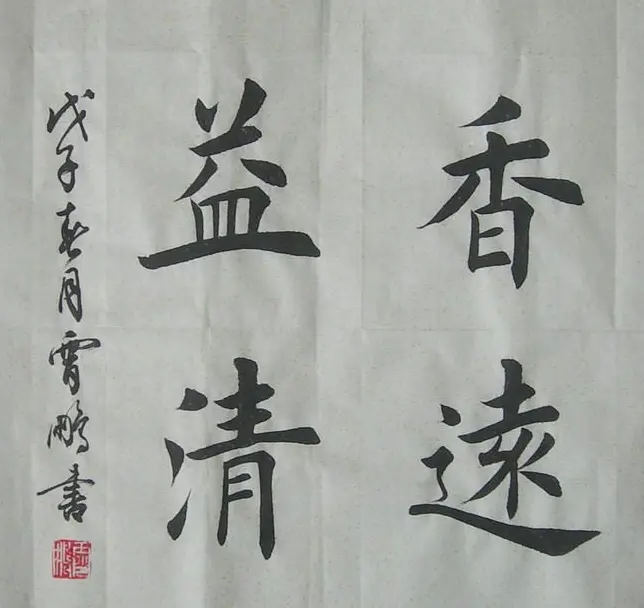 香遠
益清
戊子春月霄鵬書